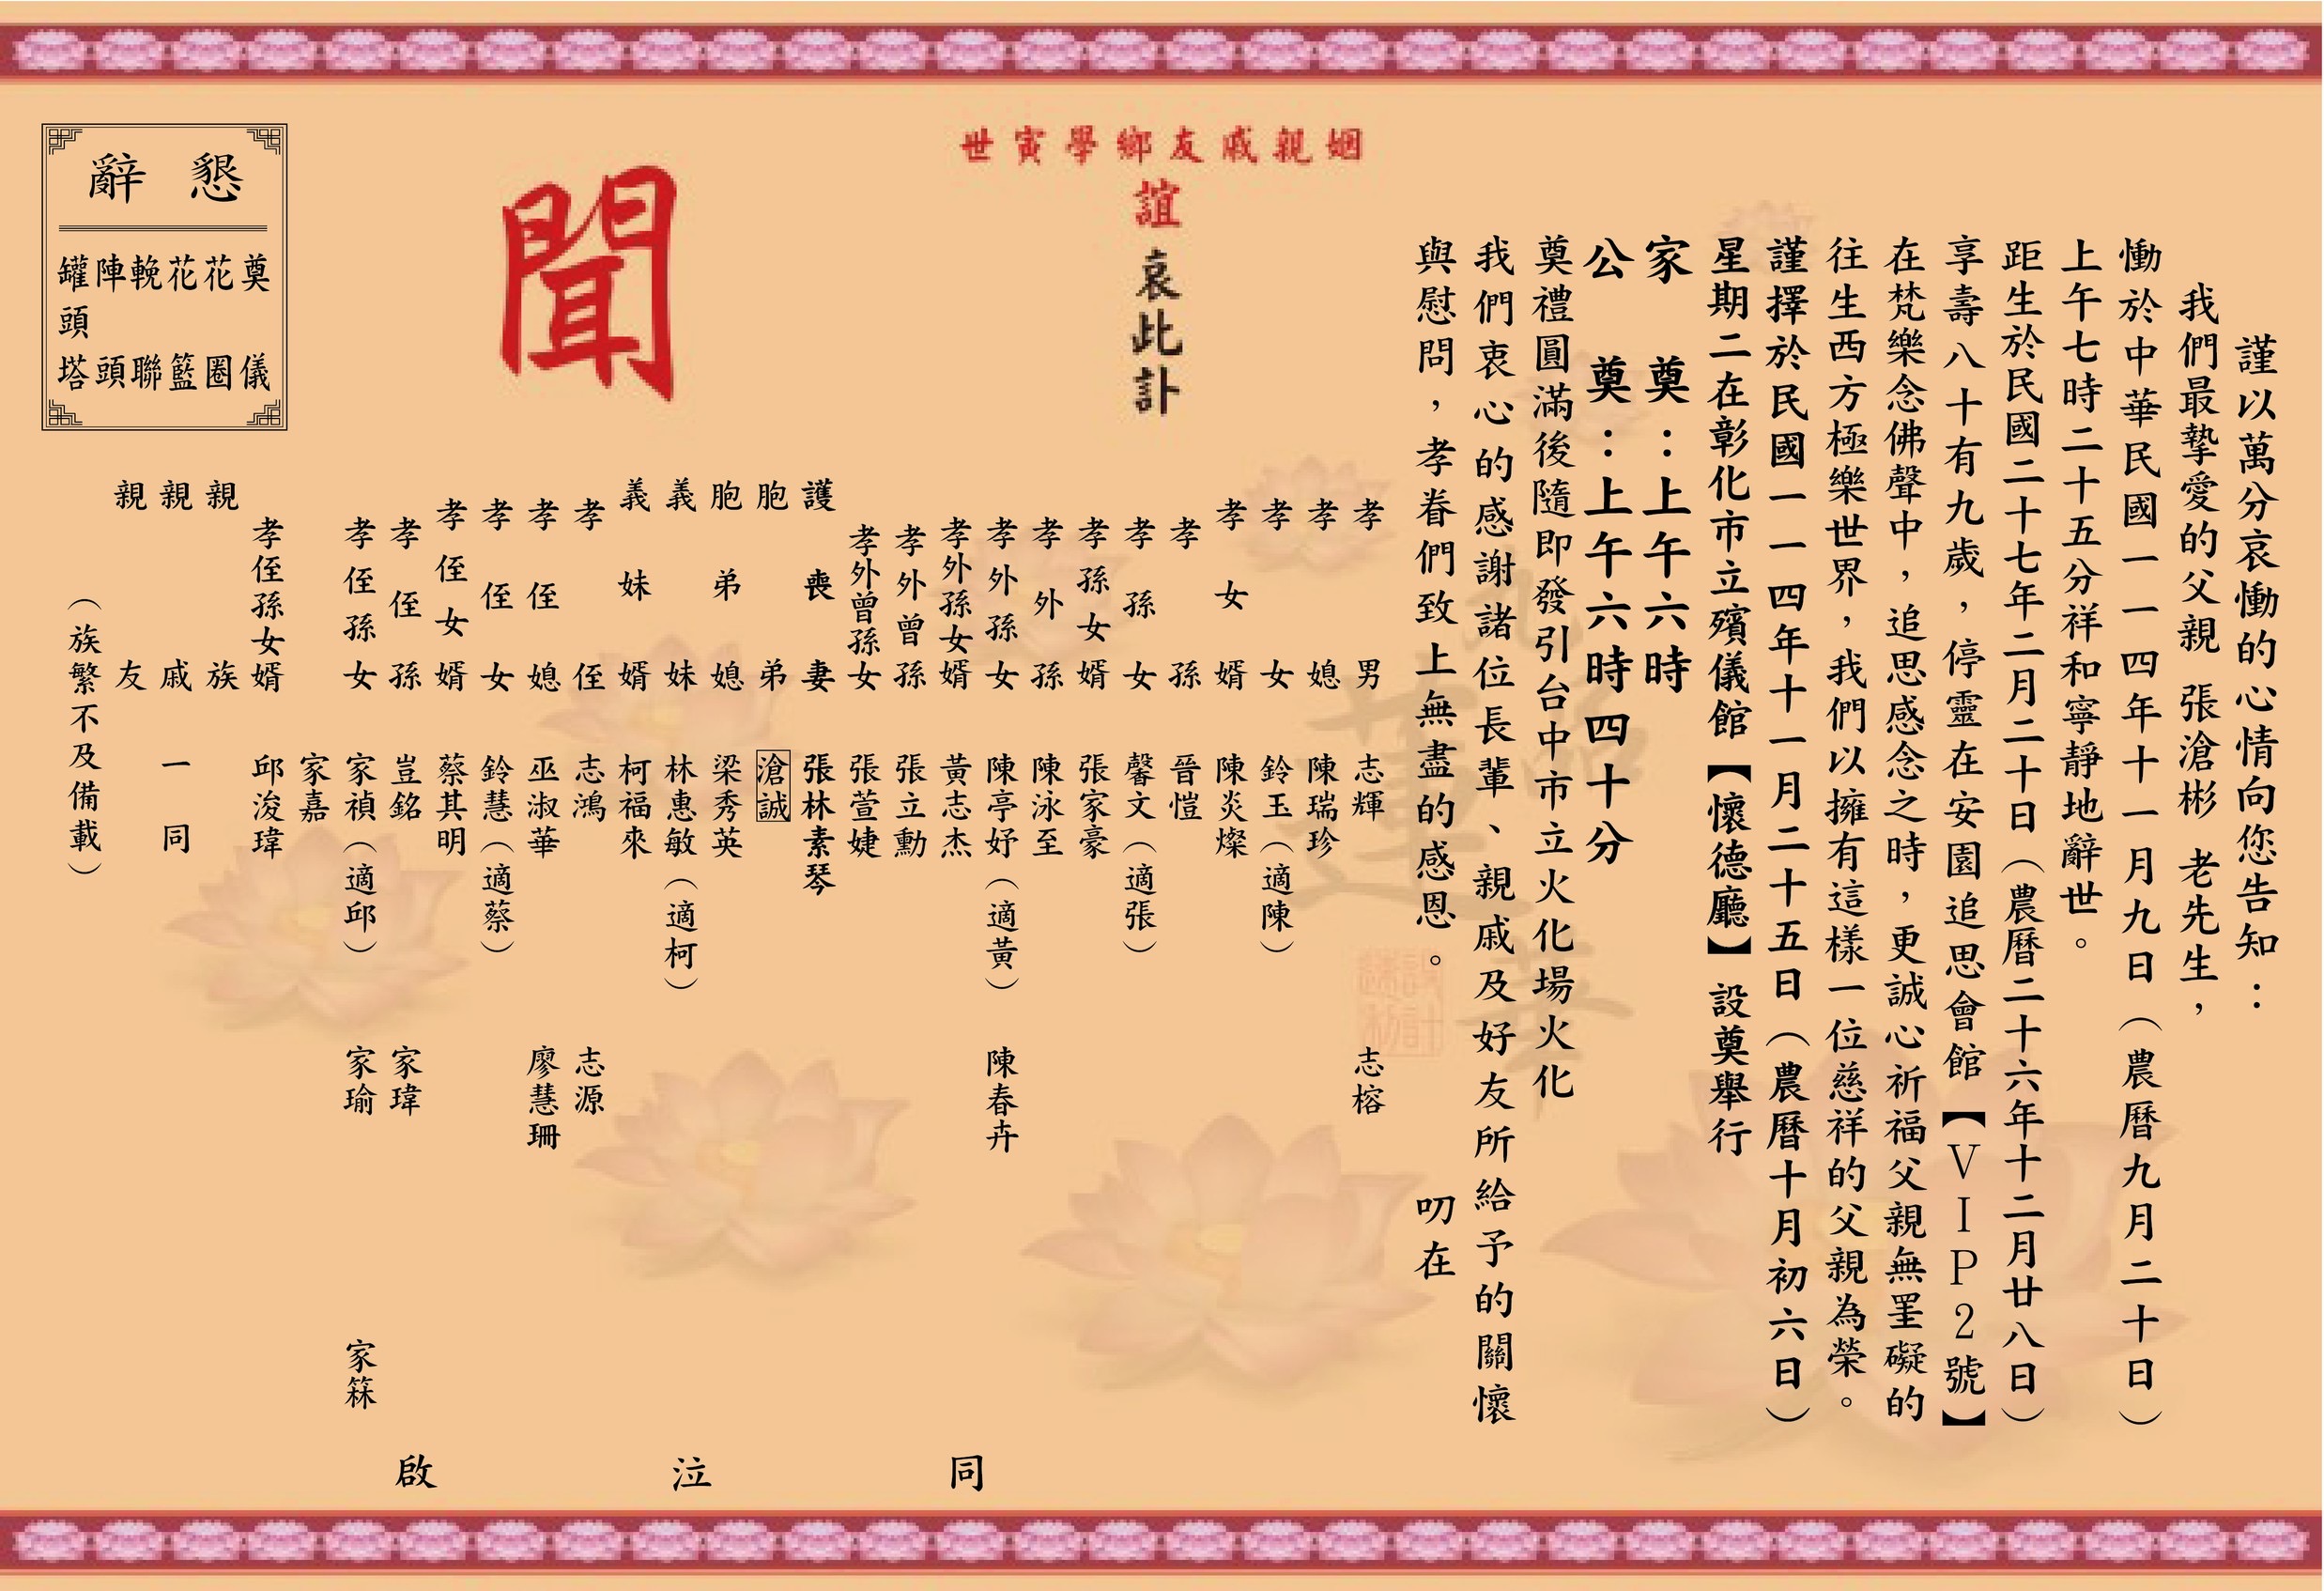 謹以萬分哀慟的心情向您告知：
我們最摯愛的父親 張滄彬 老先生，
慟於中華民國一一四年十一月九日（農曆九月二十日）
上午七時二十五分祥和寧靜地辭世。
距生於民國二十七年二月二十日（農曆二十六年十二月廿八日）
享壽八十有九歲，停靈在安園追思會館【VIP2號】
在梵樂念佛聲中，追思感念之時，更誠心祈福父親無罣礙的
往生西方極樂世界，我們以擁有這樣一位慈祥的父親為榮。
謹擇於民國一一四年十一月二十五日（農曆十月初六日）
星期二在彰化市立殯儀館【懷德廳】設奠舉行
家　奠：上午六時
公　奠：上午六時四十分
奠禮圓滿後隨即發引台中市立火化場火化
我們衷心的感謝諸位長輩、親戚及好友所給予的關懷
與慰問，孝眷們致上無盡的感恩。　叨在
姻親戚友鄉學寅世
誼
哀此訃
聞
孝男 志輝 志榕
孝媳 陳瑞珍
孝女 鈴玉（適陳）
孝女婿 陳炎燦
孝孫 晉愷
孝孫女 馨文（適張）
孝孫女婿 張家豪
孝外孫 陳泳至
孝外孫女 陳亭妤（適黃） 陳春卉
孝外孫女婿 黃志杰
孝外曾孫 張立勳
孝外曾孫女 張萱婕
護喪妻 張林素琴
胞弟 滄誠
胞弟媳 梁秀英
義妹 林惠敏（適柯）
義妹婿 柯福來
孝侄 志鴻 志源
孝侄媳 巫淑華 廖慧珊
孝侄女 鈴慧（適蔡）
孝侄女婿 蔡其明
孝侄孫 豈銘 家瑋
孝侄孫女 家禎（適邱） 家瑜 家箖
家嘉
孝侄孫女婿 邱浚瑋
親族
親戚 一同
親友
（族繁不及備載）
同泣啟
懇辭
奠儀
花圈
花籃
輓聯
陣頭
罐頭塔